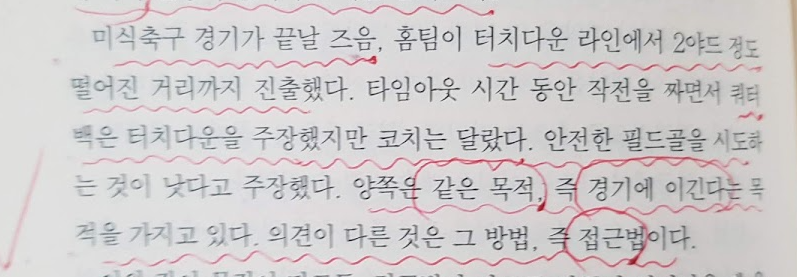 미식축구 경기가 끝날 즈음, 홈팀이 터치다운 라인에서 2야드 정도
떨어진 거리까지 진출했다. 타임아웃 시간 동안 작전을 짜면서 쿼터
백은 터치다운을 주장했지만 코치는 달랐다. 안전한 필드골을 시도하
는 것이 낫다고 주장했다. 양쪽은 같은 목적, 즉 경기에 이긴다는 목
적을 가지고 있다. 의견이 다른 것은 그 방법, 즉 접근법이다.